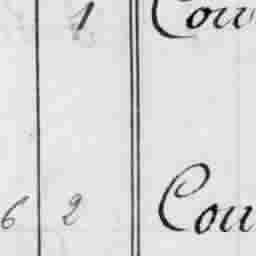 1 Cou
6 2 Cou